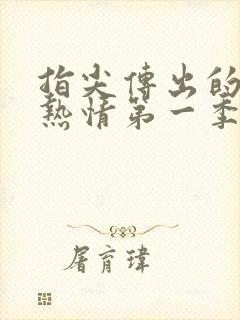 指尖傳出的
熱情第一季
屠育瑋